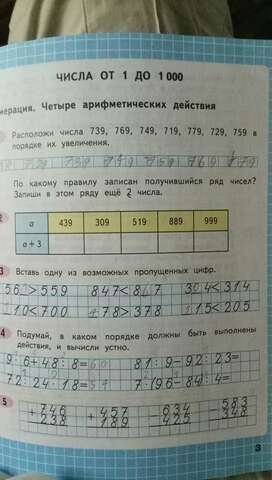 ЧИСЛА ОТ 1 ДО 1000
мерация. Четыре арифметических действия
Расположи числа 739, 769, 749, 719, 779, 729, 759 в
порядке их увеличения.
По какому правилу записан получившийся ряд чисел?
Запиши в этом ряду ещё 2 числа.
2
a 439 309 519 889 999
a + 3
3 Вставь одну из возможных пропущенных цифр.
56 > 559 847 < 8 7 30 4 < 314
10 < 700 78 > 378 15 < 205
4 Подумай, в каком порядке должны быть выполнены
действия, и вычисли устно.
9 : 6 + 48 : 8 = 81 : 9 - 92 : 23 =
72 : 24 · 18 = 54 7 · (96 - 84) : 4 =
5
+ 746 238 + 457 189 - 634 425 - 583 348
3